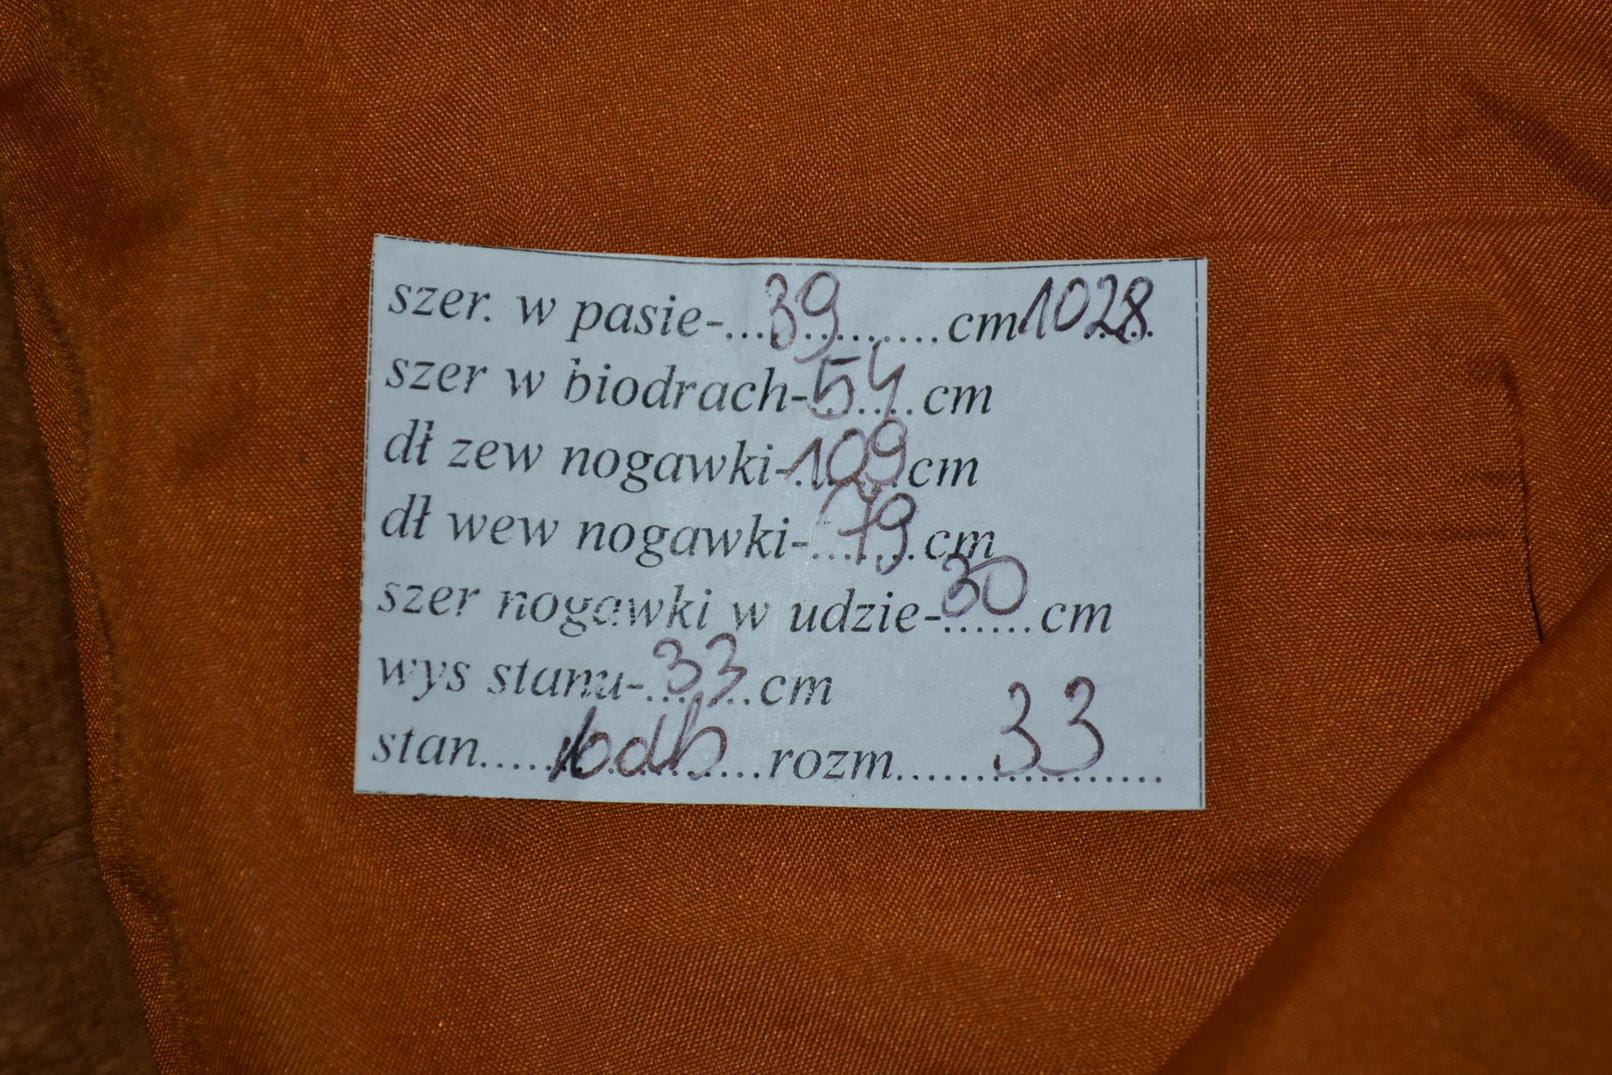 szer. w pasie-...39...........cm 1028
szer w biodrach-54....cm
dł zew nogawki-109cm
dł wew nogawki-...79.cm
szer nogawki w udzie-30......cm
wys stanu-.33...cm
stan.....bdb...rozm......33.........